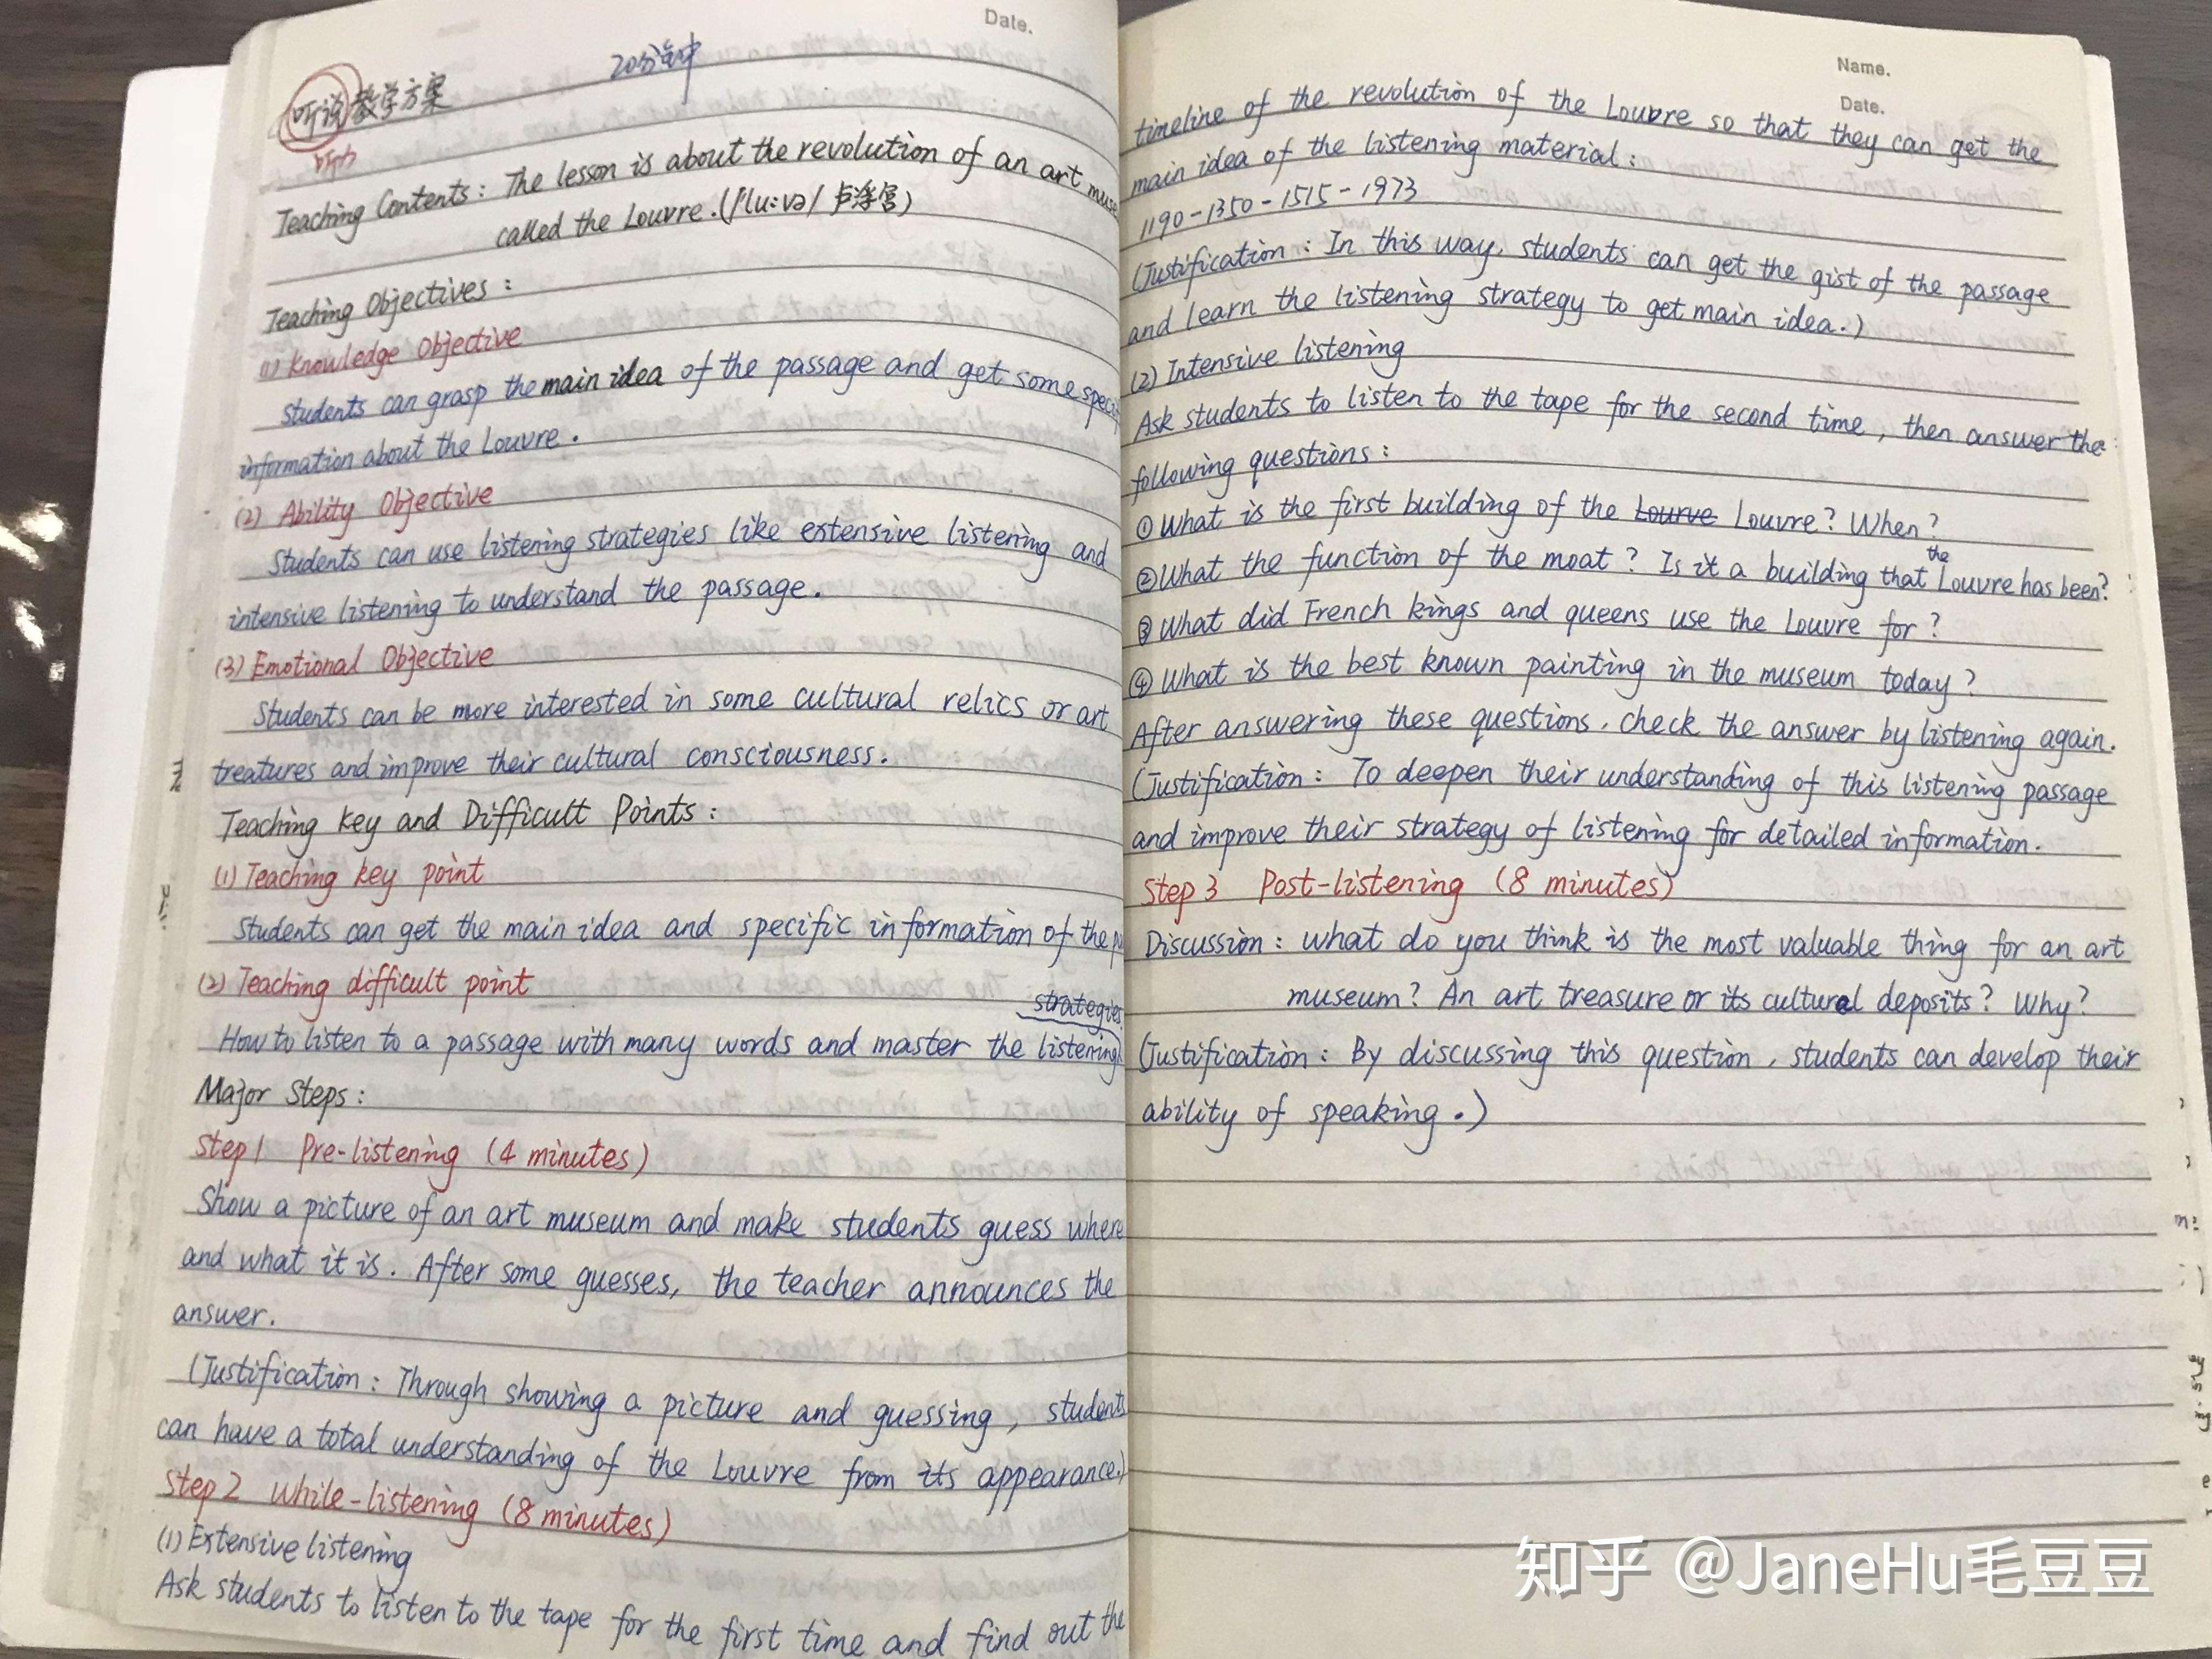 Date.
20分钟
听说教学方案
听力
Teaching Contents: The lesson is about the revolution of an art muse
called the Louvre.(/'lu:və/ 卢浮宫)
Teaching Objectives:
(1) Knowledge Objective
Students can grasp the main idea of the passage and get some speci
information about the Louvre.
(2) Ability Objective
Students can use listening strategies like extensive listening and
intensive listening to understand the passage.
(3) Emotional Objective
Students can be more interested in some cultural relics or art
treatures and improve their cultural consciousness.
Teaching key and Difficult Points:
(1) Teaching key point
Students can get the main idea and specific information of the
(2) Teaching difficult point
strategies
How to listen to a passage with many words and master the listening
Major Steps:
Step 1 Pre-listening (4 minutes)
Show a picture of an art museum and make students guess where
and what it is. After some guesses, the teacher announces the
answer.
(Justification: Through showing a picture and guessing, students
can have a total understanding of the Louvre from its appearance.)
Step 2 While-listening (8 minutes)
(1) Extensive listening
Ask students to listen to the tape for the first time and find out the
Name.
Date.
timeline of the revolution of the Louvre so that they can get the
main idea of the listening material:
1190-1350-1515-1973
(Justification: In this way, students can get the gist of the passage
and learn the listening strategy to get main idea.)
(2) Intensive listening
Ask students to listen to the tape for the second time, then answer the
following questions:
①What is the first building of the Lourve Louvre? When?
②What the function of the moat? Is it a building that the Louvre has been?
③What did French kings and queens use the Louvre for?
④What is the best known painting in the museum today?
After answering these questions, check the answer by listening again.
(Justification: To deepen their understanding of this listening passage
and improve their strategy of listening for detailed information.
Step 3 Post-listening (8 minutes)
Discussion: What do you think is the most valuable thing for an art
museum? An art treasure or its cultural deposits? Why?
(Justification: By discussing this question, students can develop their
ability of speaking.)
知乎 @JaneHu毛豆豆